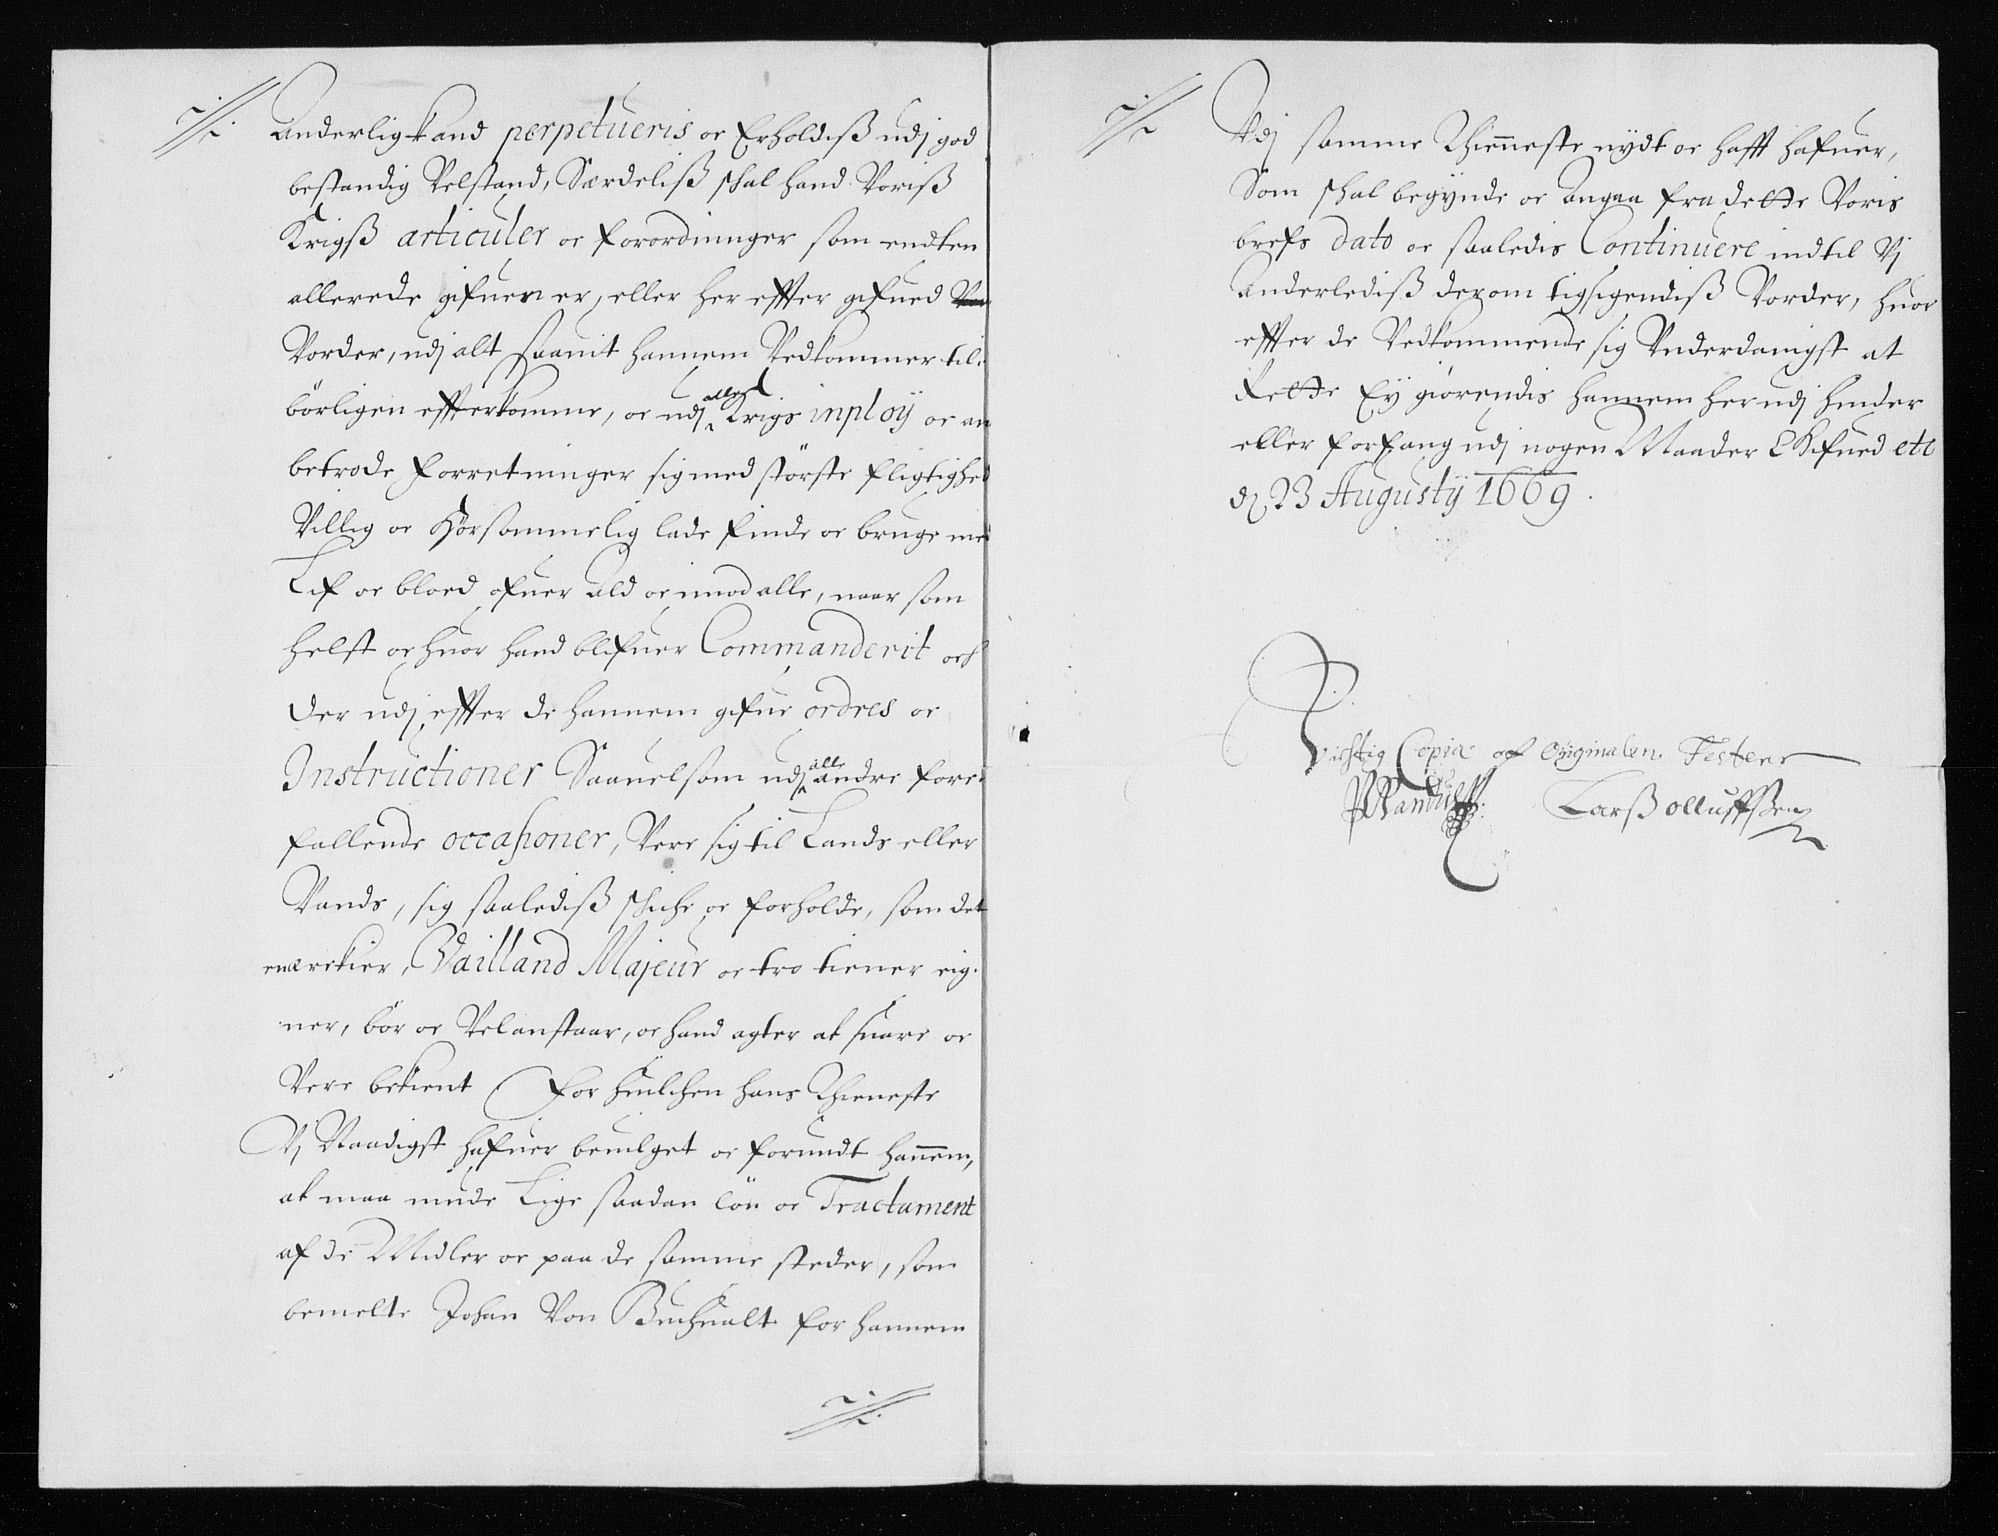 Anderlig kand perpetueris oc Erholdiß udj god
bestandig Velstand, Særdeliß schal hand Voriß
Krigß articuler oc forordninger som endten
allerede gifuen er, eller her effter gifued
Vorder, udj alt saauit hannem Vedkommer til-
börligen effterkomme, oc udj alle Krigs inploÿ oc an
betrode forretninger sig med störste fligtighed
Villig oc Hörsommelig lade finde oc bruge med
Lif oc bloed ofuer Ald oc imod alle, naar som
helst oc huor hand blifuer Commanderit och
der udj effter de hannem gifne ordres oc
Instructioner Saauelsom udj alle andre fore-
fallende occasioner, Vere sig til Lands eller
Vands, sig saalediß schiche oc forholde, som det
en ærekier, Vailland Majeur oc tro tiener eig-
ner, bör oc Velanstaar, oc hand agter at suare oc
Vere bekient For huilchen hans Thieneste
Vj Naadigst hafuer beuilget oc forundt hannem,
at maa niude Lige saadan lön oc Tractament
af de Midler oc paa de samme steder, som
bemelte Johan Von Buchualt for hannem
Udj samme Thienneste nydt oc hafft hafuer,
Som schal begynde oc Angaa fra dette Voris
brefs dato oc saaledis Continuere indtil Vj
Anderlediß derom tilsigendiß Vorder, huor
effter de Vedkommende sig Underdanigst at
Rette Ey giörendis hannem her udj hinder
eller forfang udj nogen Maader Gifued etc
d. 23 Augustij 1669.
Richtig Copia af Originalen Testerer
Larß olluffsen